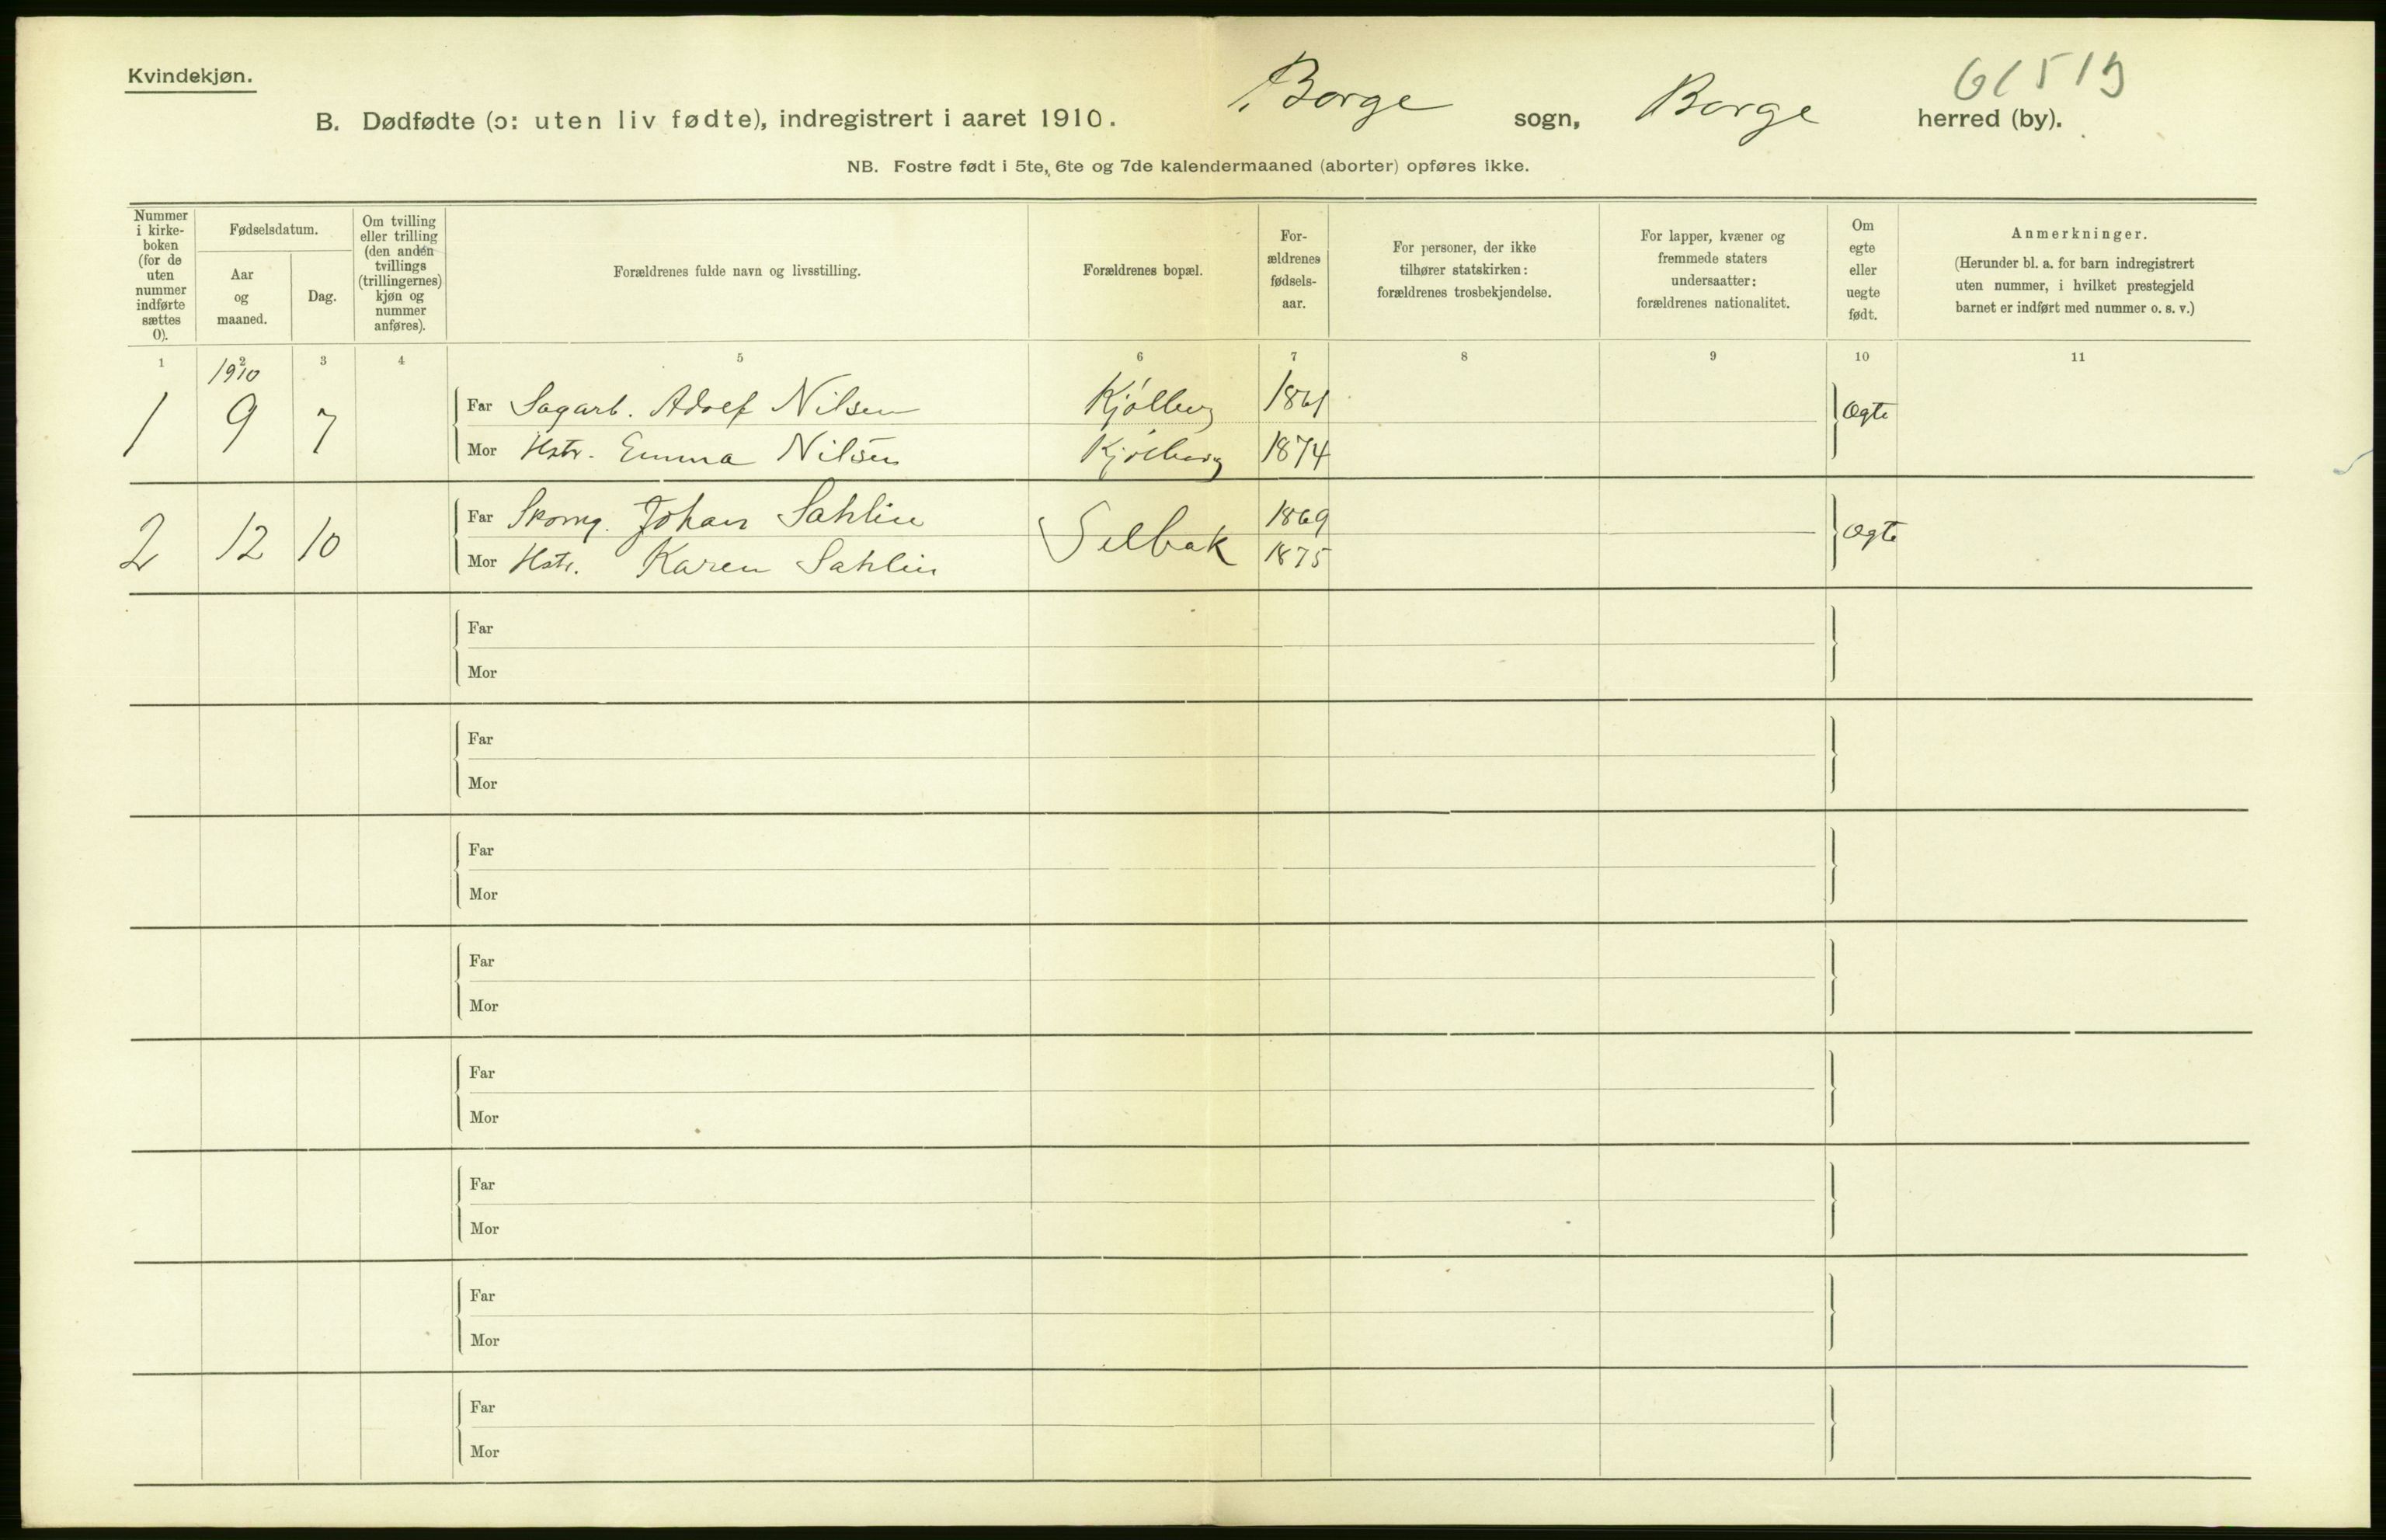 Kvindekjøn.
61519
B. Dødfødte (ɔ: uten liv fødte), indregistrert i aaret 1910. Borge sogn, Borge herred (by).
NB. Fostre født i 5te, 6te og 7de kalendermaaned (aborter) opføres ikke.
Nummer
i kirke-
boken
(for de
uten
nummer
indførte
sættes
0).
Fødselsdatum.
Aar
og
maaned.
Dag.
Om tvilling
eller trilling
(den anden
tvillings
(trillingernes)
kjøn og
nummer
anføres).
Forældrenes fulde navn og livsstilling.
Forældrenes bopæl.
For-
ældrenes
fødsels-
aar.
For personer, der ikke
tilhører statskirken:
forældrenes trosbekjendelse.
For lapper, kvæner og
fremmede staters
undersaatter:
forældrenes nationalitet.
Om
egte
eller
uegte
født.
Anmerkninger.
(Herunder bl. a. for barn indregistrert
uten nummer, i hvilket prestegjeld
barnet er indført med nummer o. s. v.)
1 2 3 4 5 6 7 8 9 10 11
1910
1 9 7 Far Sagarb. Adolf Nilsen Kjølberg 1861 Ægte
Mor Hstr. Emma Nilsen Kjølberg 1874
2 12 10 Far Skomg. Johan Sahlin Selbak 1869 Ægte
Mor Hstr. Karen Sahlin 1875
Far
Mor
Far
Mor
Far
Mor
Far
Mor
Far
Mor
Far
Mor
Far
Mor
Far
Mor